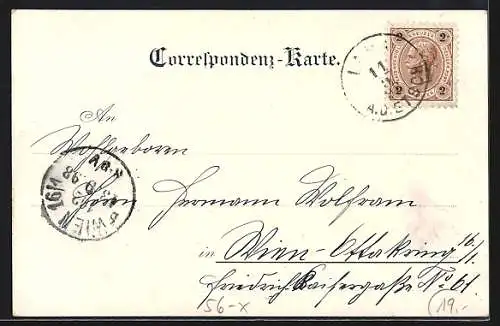 Correspondenz-Karte.
2 2
2 2
11
A.D. ETSCH
An
Wohlgeboren
16/1
WIEN
9.98
Herrn Hermann Wolfram
in Wien-Ottakring 16/1.
Friedrich Kaisergaße No 61.
56-X
(19.-